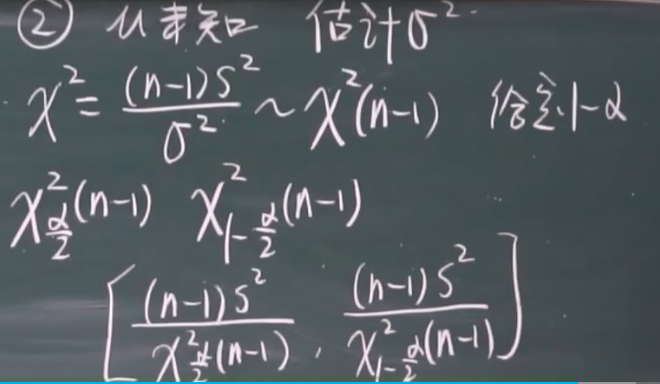 ② μ未知 估计σ²
χ² = (n-1)S² / σ² ~ χ²(n-1) 给定1-α
χ²_{α/2}(n-1) χ²_{1-α/2}(n-1)
[(n-1)S² / χ²_{α/2}(n-1) , (n-1)S² / χ²_{1-α/2}(n-1)]